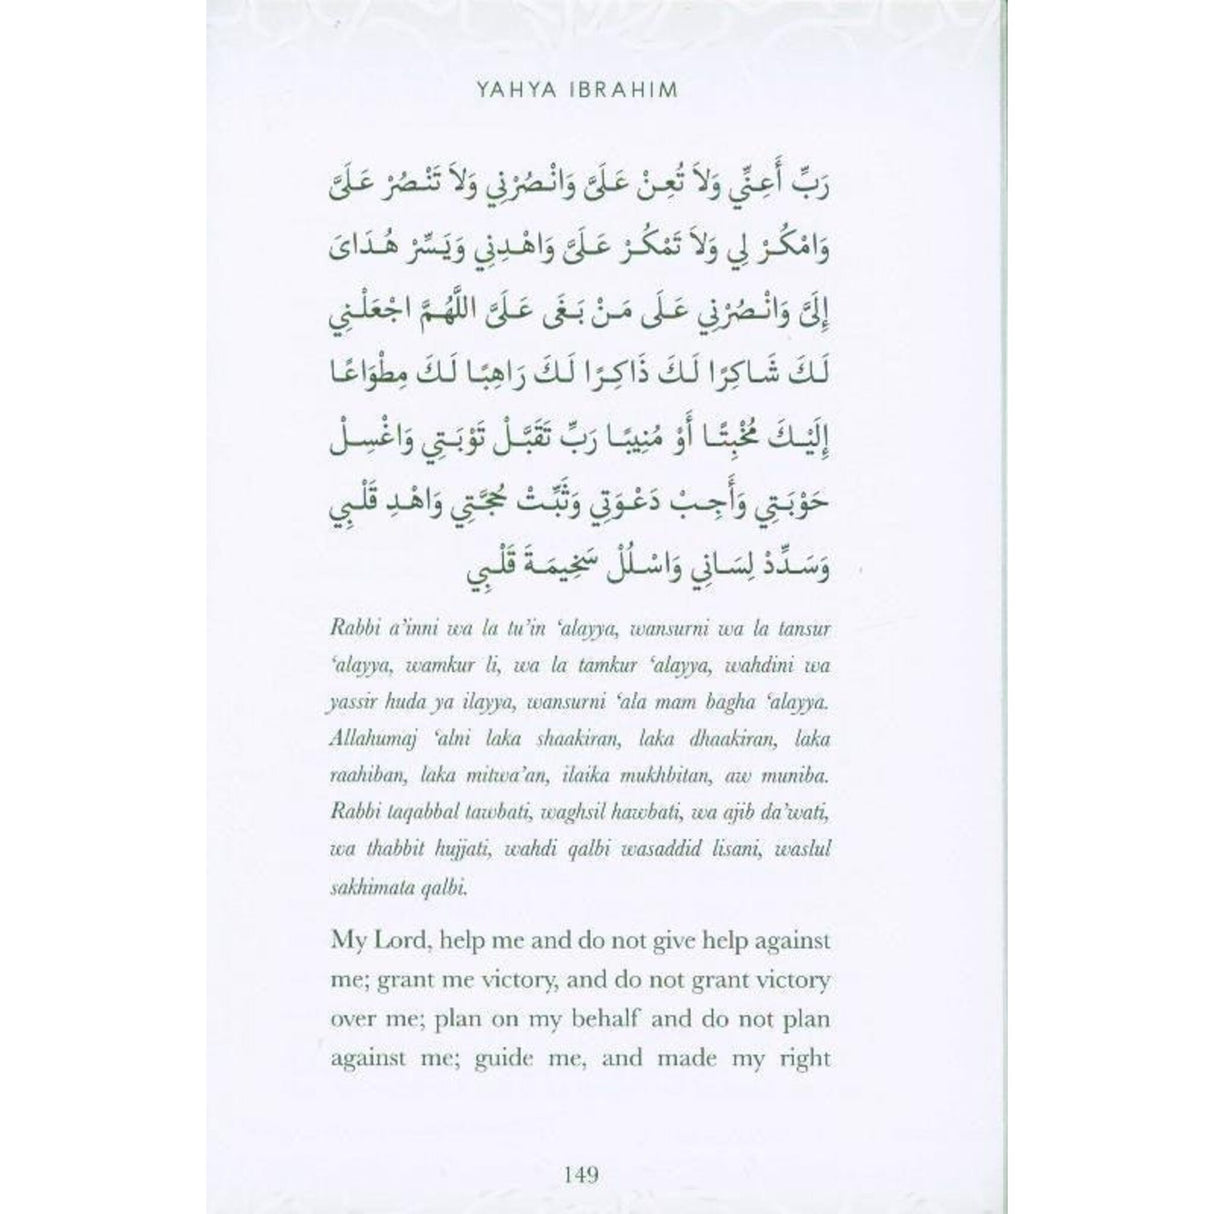 YAHYA IBRAHIM
رَبِّ أَعِنِّي وَلاَ تُعِنْ عَلَىَّ وَانْصُرْنِي وَلاَ تَنْصُرْ عَلَىَّ
وَامْكُرْ لِي وَلاَ تَمْكُرْ عَلَىَّ وَاهْدِنِي وَيَسِّرْ هُدَاىَ
إِلَىَّ وَانْصُرْنِي عَلَى مَنْ بَغَى عَلَىَّ اللَّهُمَّ اجْعَلْنِي
لَكَ شَاكِرًا لَكَ ذَاكِرًا لَكَ رَاهِبًا لَكَ مِطْوَاعًا
إِلَيْكَ مُخْبِتًا أَوْ مُنِيبًا رَبِّ تَقَبَّلْ تَوْبَتِي وَاغْسِلْ
حَوْبَتِي وَأَجِبْ دَعْوَتِي وَثَبِّتْ حُجَّتِي وَاهْدِ قَلْبِي
وَسَدِّدْ لِسَانِي وَاسْلُلْ سَخِيمَةَ قَلْبِي
Rabbi a’inni wa la tu’in ‘alayya, wansurni wa la tansur
‘alayya, wamkur li, wa la tamkur ‘alayya, wahdini wa
yassir huda ya ilayya, wansurni ‘ala mam bagha ‘alayya.
Allahumaj ‘alni laka shaakiran, laka dhaakiran, laka
raahiban, laka mitwa’an, ilaika mukhbitan, aw muniba.
Rabbi taqabbal tawbati, waghsil hawbati, wa ajib da’wati,
wa thabbit hujjati, wahdi qalbi wasaddid lisani, waslul
sakhimata qalbi.
My Lord, help me and do not give help against
me; grant me victory, and do not grant victory
over me; plan on my behalf and do not plan
against me; guide me, and made my right
149